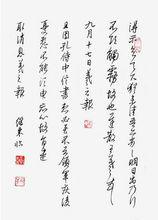 得示知足下猶未佳耿耿吾亦劣劣明日出乃行
不欲觸霧故也遲散王羲之頓首
九月十七日羲之報
且因孔侍中信書想必至不知領軍疾後
憂懸不能須臾忘心故旨遣
取消息羲之報